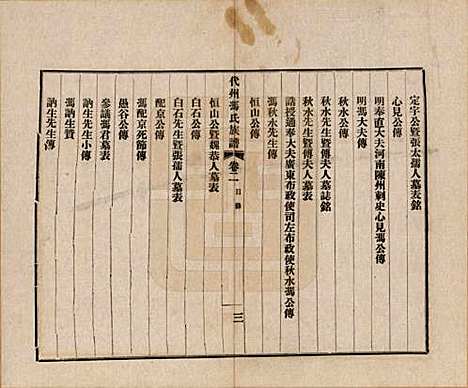 定宇公暨張太孺人墓表銘
心見公傳
明奉直大夫河南陳州刺史心見馮公傳
明馮大夫傳
秋水公傳
秋水先生暨傅夫人墓誌銘
秋水先生暨傅夫人墓表
誥授通奉大夫廣東布政使司左布政使秋水馮公傳
馮秋水先生傳
恒山公傳
代州馮氏族譜
卷二
目錄
三
恒山公暨魏恭人墓表
白石公傳
白石先生暨張孺人墓表
配京公傳
馮配京死節傳
愚谷公傳
參議馮君墓表
訥生先生小傳
馮訥生贊
訥生先生傳